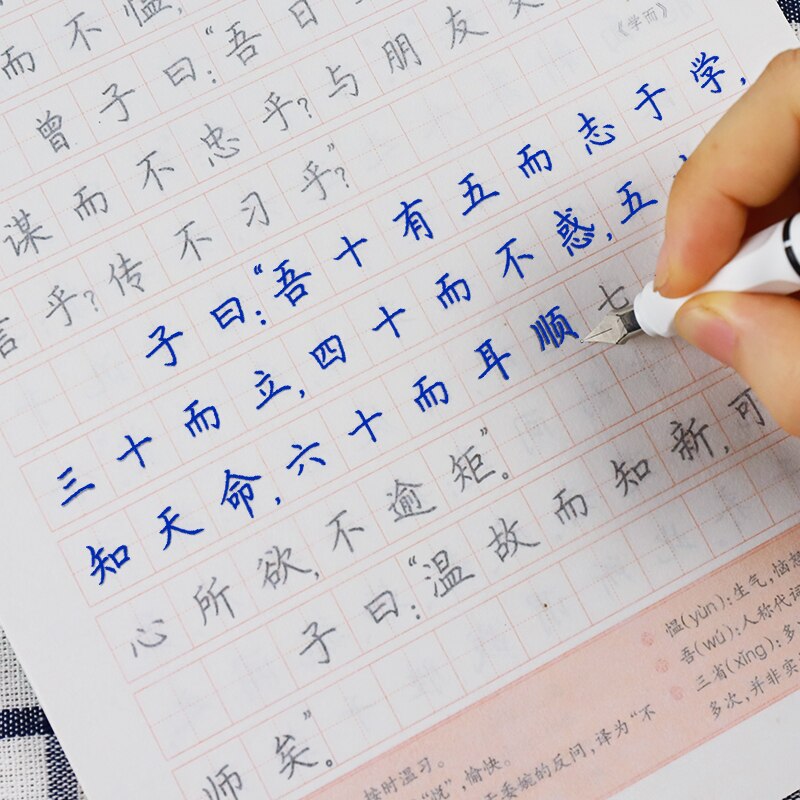 而不愠,
曾子曰:“吾日
《学而》
谋而不忠乎?与朋友
言乎?传不习乎?”
子曰:“吾十有五而志于学,
三十而立,四十而不惑,五
知天命,六十而耳顺 七
心所欲,不逾矩。”
子曰:“温故而知新,可
师矣。”
愠(yùn):生气,恼
吾(wú):人称代词
三省(xǐng):多
多次,并非实
按时温习。
“悦”,愉快。
委婉的反问,译为“不